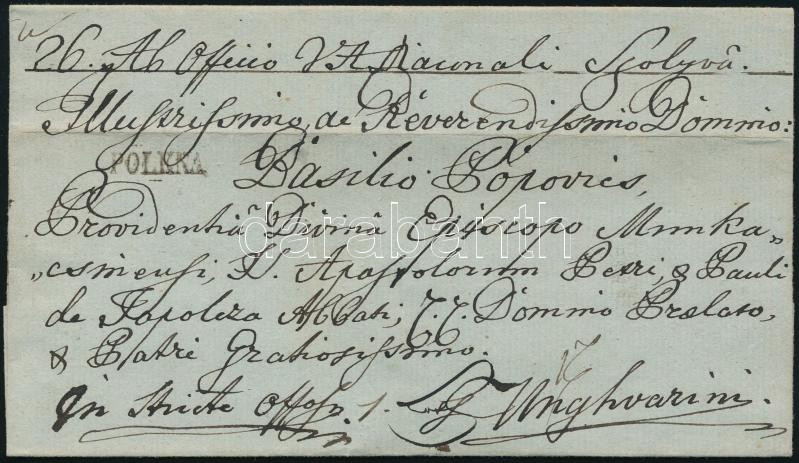 26. Ab Officio V A Diaconali Szolyvā.
Illustrissimo, ac Reverendissimo Domino:
POLKKA
Basilio Popovics,
Providentiā Divinā Episcopo Munka„
„csinensi, S. Apostolorum Petri, & Pauli
de Tapolcza Abbati, Domino Prælato,
& Patri Gratiosissimo.
In stricte Offoso
Unghvarini.
darabanth